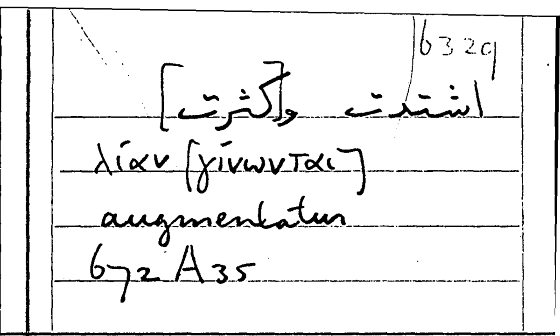 6329
اشتدت و[كثرت]
λίαν [γίνωνται]
augmentatur
672 A 35